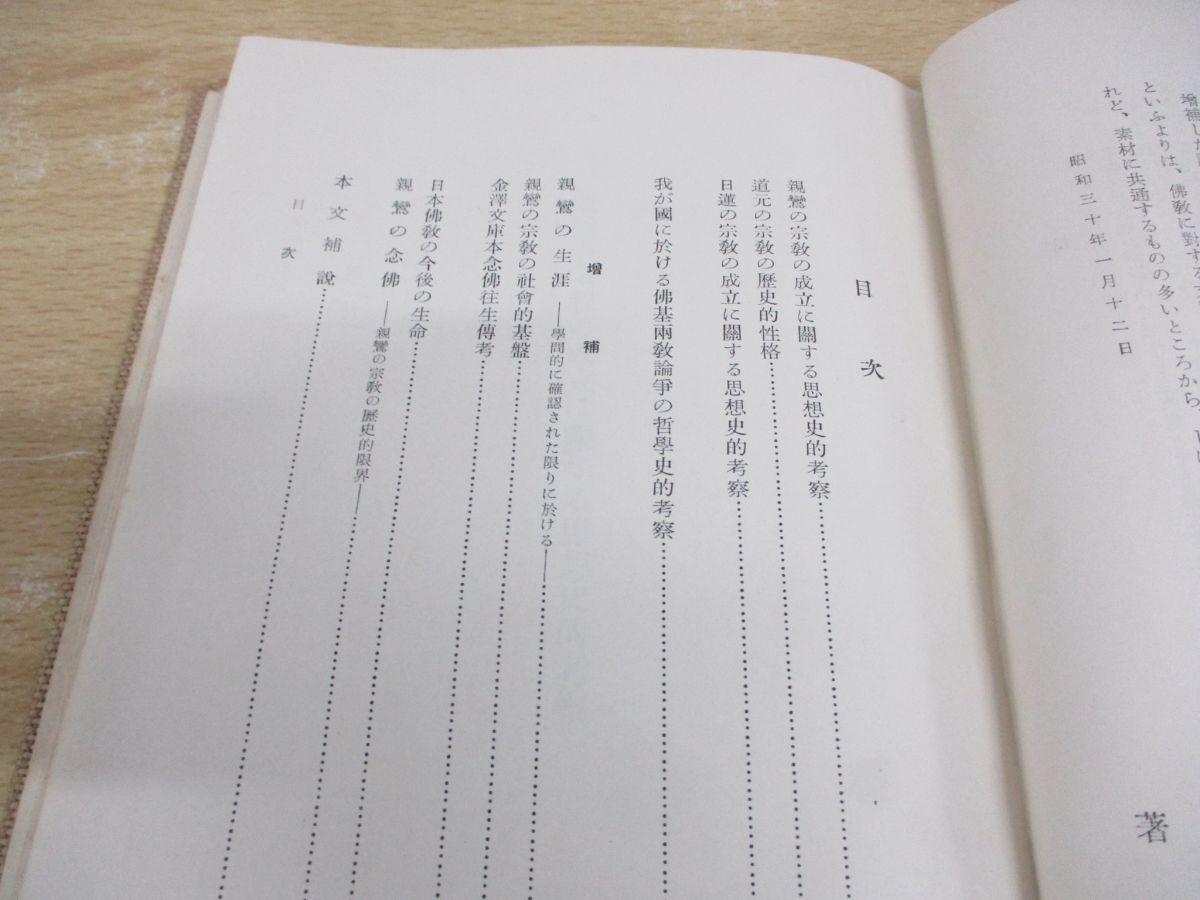 増補した
といふよりは、佛教に對する
れど、素材に共通するものの多いところから、
昭和三十年一月十二日
著
目次
親鸞の宗教の成立に關する思想史的考察
道元の宗教の歴史的性格
日蓮の宗教の成立に關する思想史的考察
我が國に於ける佛基兩教論爭の哲學史的考察
增補
親鸞の生涯――學問的に確認された限りに於ける――
親鸞の宗教の社會的基盤
金澤文庫本念佛往生傳考
日本佛教の今後の生命
親鸞の念佛――親鸞の宗教の歴史的限界――
本文補說
目次